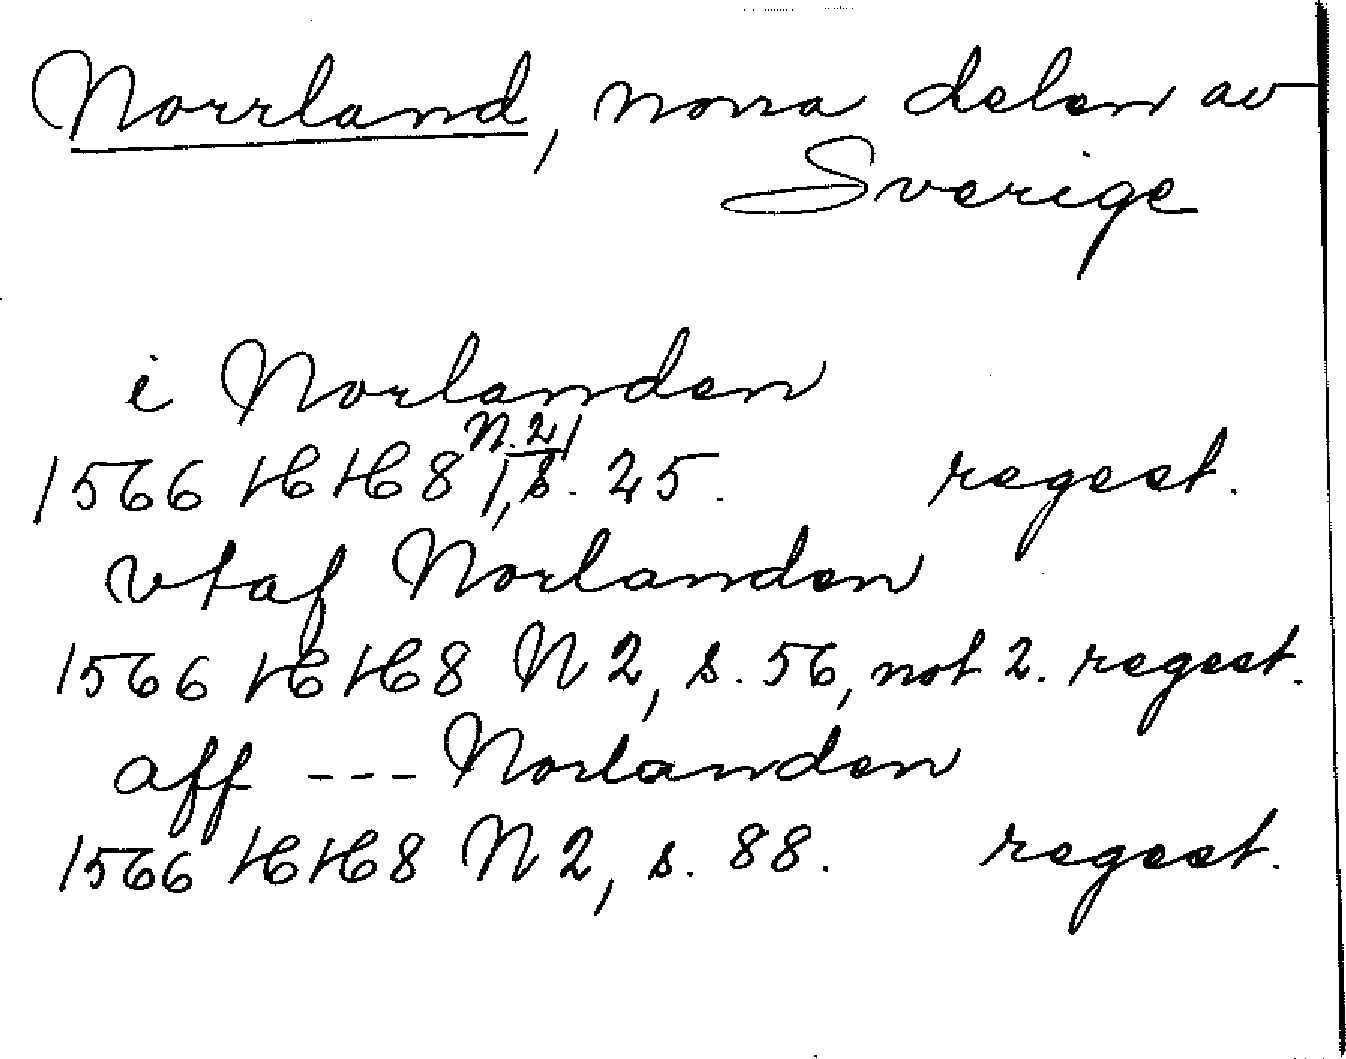 Norrland, norra delen av
Sverige
i Norlanden
1566 HH 8 N. 2, 1, s. 25. regest.
vtaf Norlanden
1566 HH 8 N 2, s. 56, not 2. regest.
aff --- Norlanden
1566 HH 8 N 2, s. 88. regest.